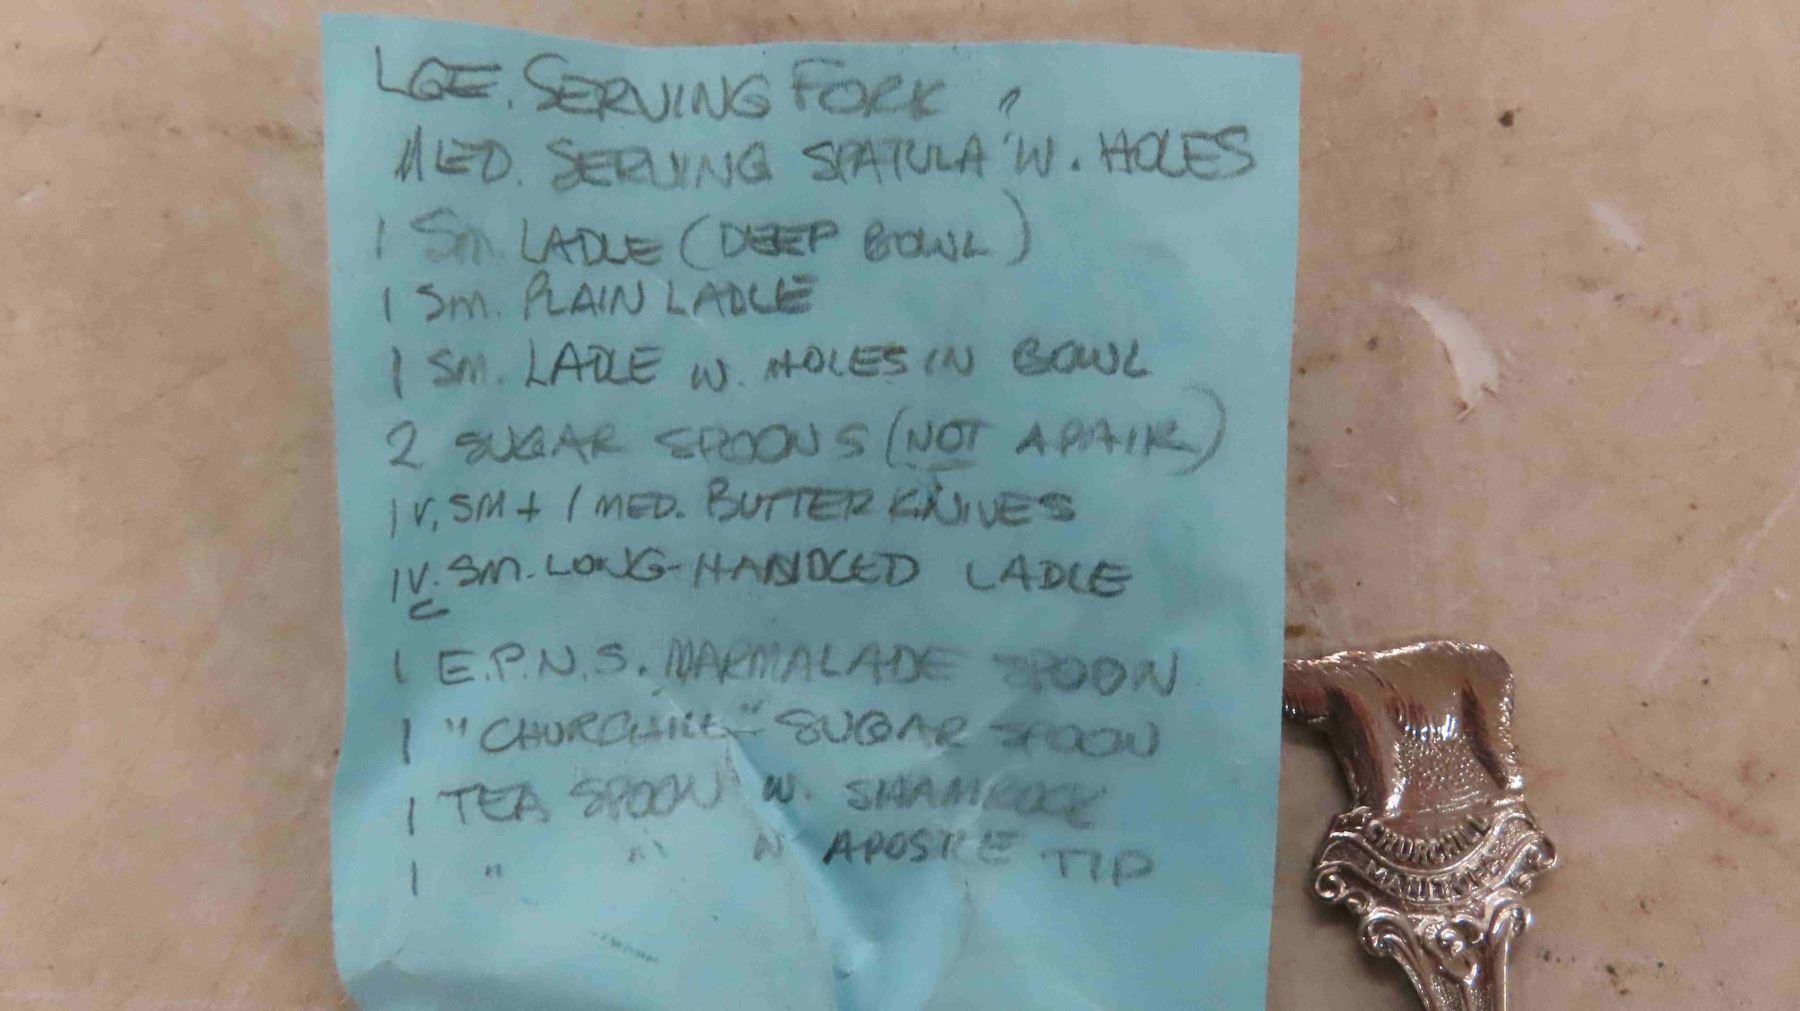 LGE. SERVING FORK ?
MED. SERVING SPATULA W. HOLES
1 SM. LADLE (DEEP BOWL)
1 SM. PLAIN LADLE
1 SM. LADLE W. HOLES IN BOWL
2 SUGAR SPOONS (NOT A PAIR)
1 V. SM + 1 MED. BUTTER KNIVES
1 V. SM. LONG-HANDLED LADLE
1 E.P.N.S. MARMALADE SPOON
1 "CHURCHILL" SUGAR SPOON
1 TEA SPOON W. SHAMROCK
1 " " W APOSTLE TIP
CHURCHILL
MANITOBA